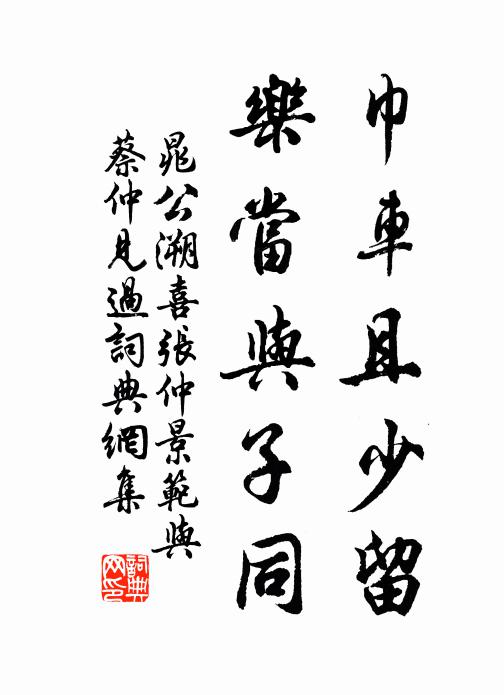 巾車且少留
樂當與子同
晁公溯喜張仲景範與
蔡仲見過詞典網集
詞典網印